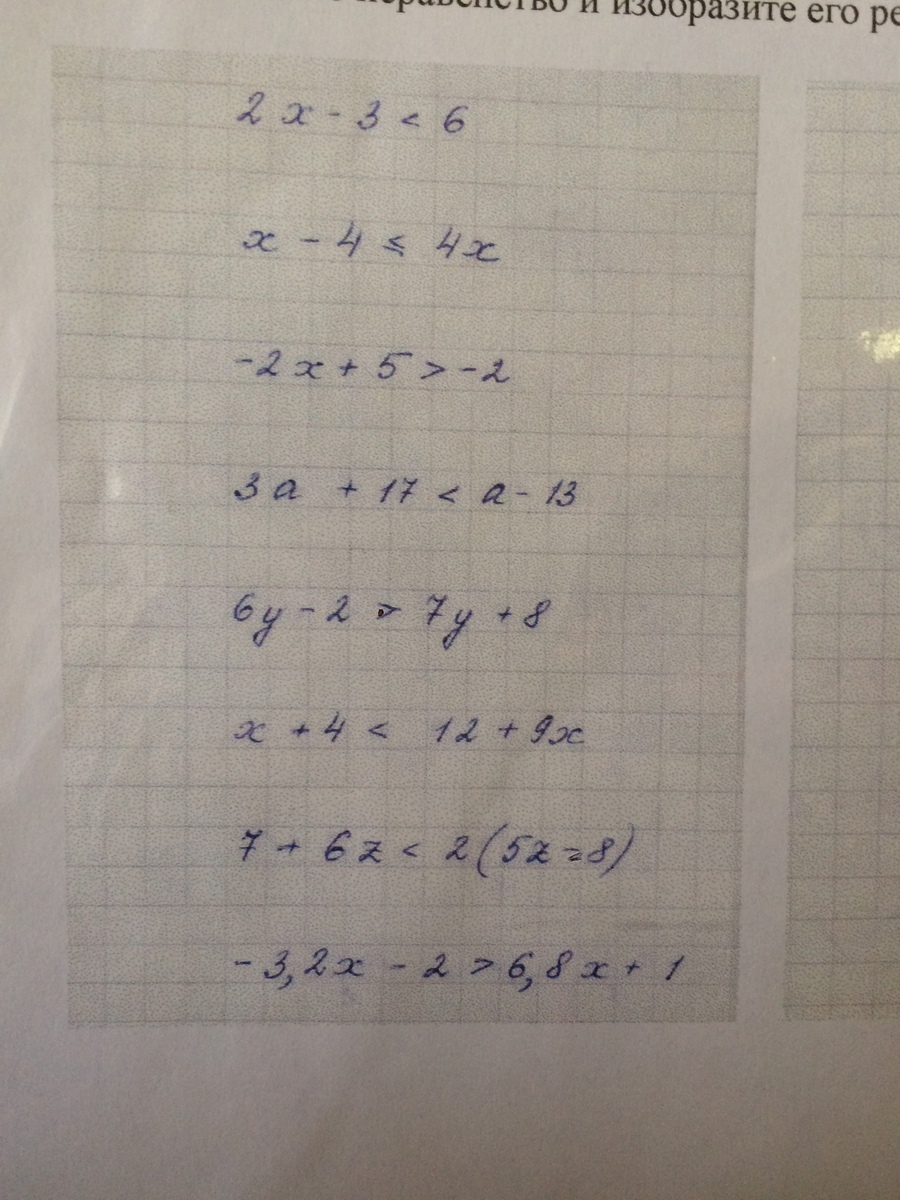 неравенство и изобразите его
2x - 3 < 6
x - 4 ≤ 4x
-2x + 5 > -2
3a + 17 < a - 13
6y - 2 > 7y + 8
x + 4 < 12 + 9x
7 + 6z < 2(5z - 8)
-3,2x - 2 > 6,8x + 1